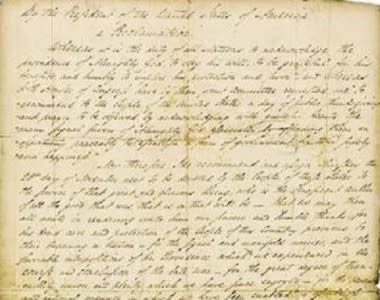 By the President of the United States of America
a Proclamation
Whereas it is the duty of all Nations to acknowledge the
providence of Almighty God, to obey his will, to be grateful for his
benefits and humbly to implore his protection and favor, and whereas
both Houses of Congress have by their joint Committee requested me "to
recommend to the People of the United States a day of public thanksgiving
and prayer to be observed by acknowledging with grateful hearts the
many signal favors of Almighty God especially by affording them an
opportunity peaceably to establish a form of government for their safety
and happiness"
Now therefore I do recommend and assign Thursday the
26th day of November next to be devoted by the People of these States to
the service of that great and glorious Being, who is the beneficent author
of all the good that was, that is, or that will be - that we may then
all unite in rendering unto him our sincere and humble thanks for
his kind care and protection of the People of this Country previous to
their becoming a Nation - for the signal and manifold mercies, and the
favorable interpositions of his Providence, which we experienced in the
course and conclusion of the late war - for the great degree of tran-
quility, union, and plenty, which we have since enjoyed - for the